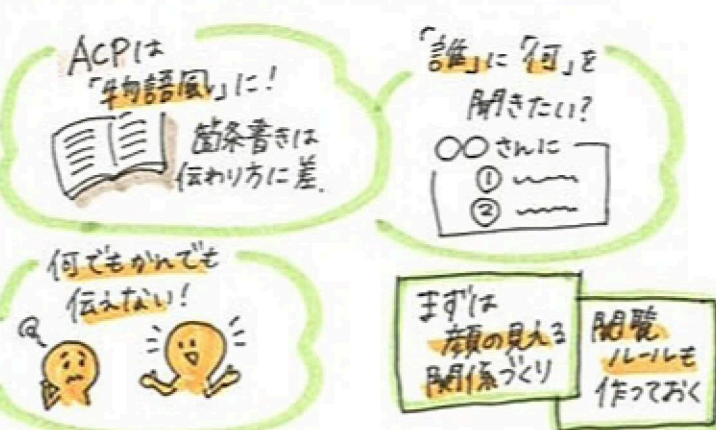 ACPは
「物語風」に！
箇条書きは
伝わり方に差.
「誰」に「何」を
聞きたい？
〇〇さんに
①
②
何でもかんでも
伝えない！
まずは
顔の見える
関係づくり
閲覧
ルールも
作っておく